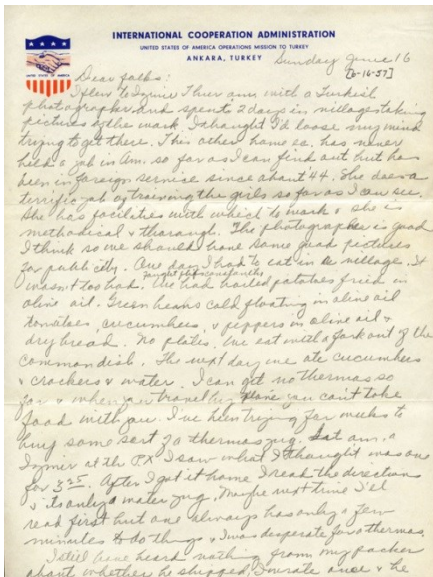 INTERNATIONAL COOPERATION ADMINISTRATION
UNITED STATES OF AMERICA OPERATIONS MISSION TO TURKEY
ANKARA, TURKEY
UNITED STATES OF AMERICA
Sunday June 16
[6-16-57]
Dear folks:
I flew to Izmir Thur am. with a Turkish
photographer and spent 2 days in villages taking
pictures of the work. I thought I'd loose my mind
trying to get there. This other home ec. has never
held a job in Am. so far as I can find out but has
been in foreign service since about 44. She does a
terrific job of training the girls so far as I can see.
She has facilities with which to work & she is
methodical & thorough. The photographer is good
I think so we should have some good pictures
for publicity. One day I had to eat in a village. It
wasn't too bad. We had boiled potatoes fried in
olive oil. Green beans cold floating in olive oil
tomatoes, cucumbers, & peppers in olive oil &
dry bread. No plates, we eat with a fork out of the
common dish. The next day we ate cucumbers
& crackers & water. I can get no thermas so
far & when you travel by plane you can't take
food with you. I've been trying for weeks to
buy some sort of a thermas jug. Sat am. in
Izmir at the P.X. I saw what I thought was one
for 3.25. After I got it home I read the directions
& its only a water jug. Maybe next time I'll
read first but one always has only a few
minutes to do things & I was desperate for a thermas.
I still have heard nothing from my packer
about whether he shipped. I wrote once & he